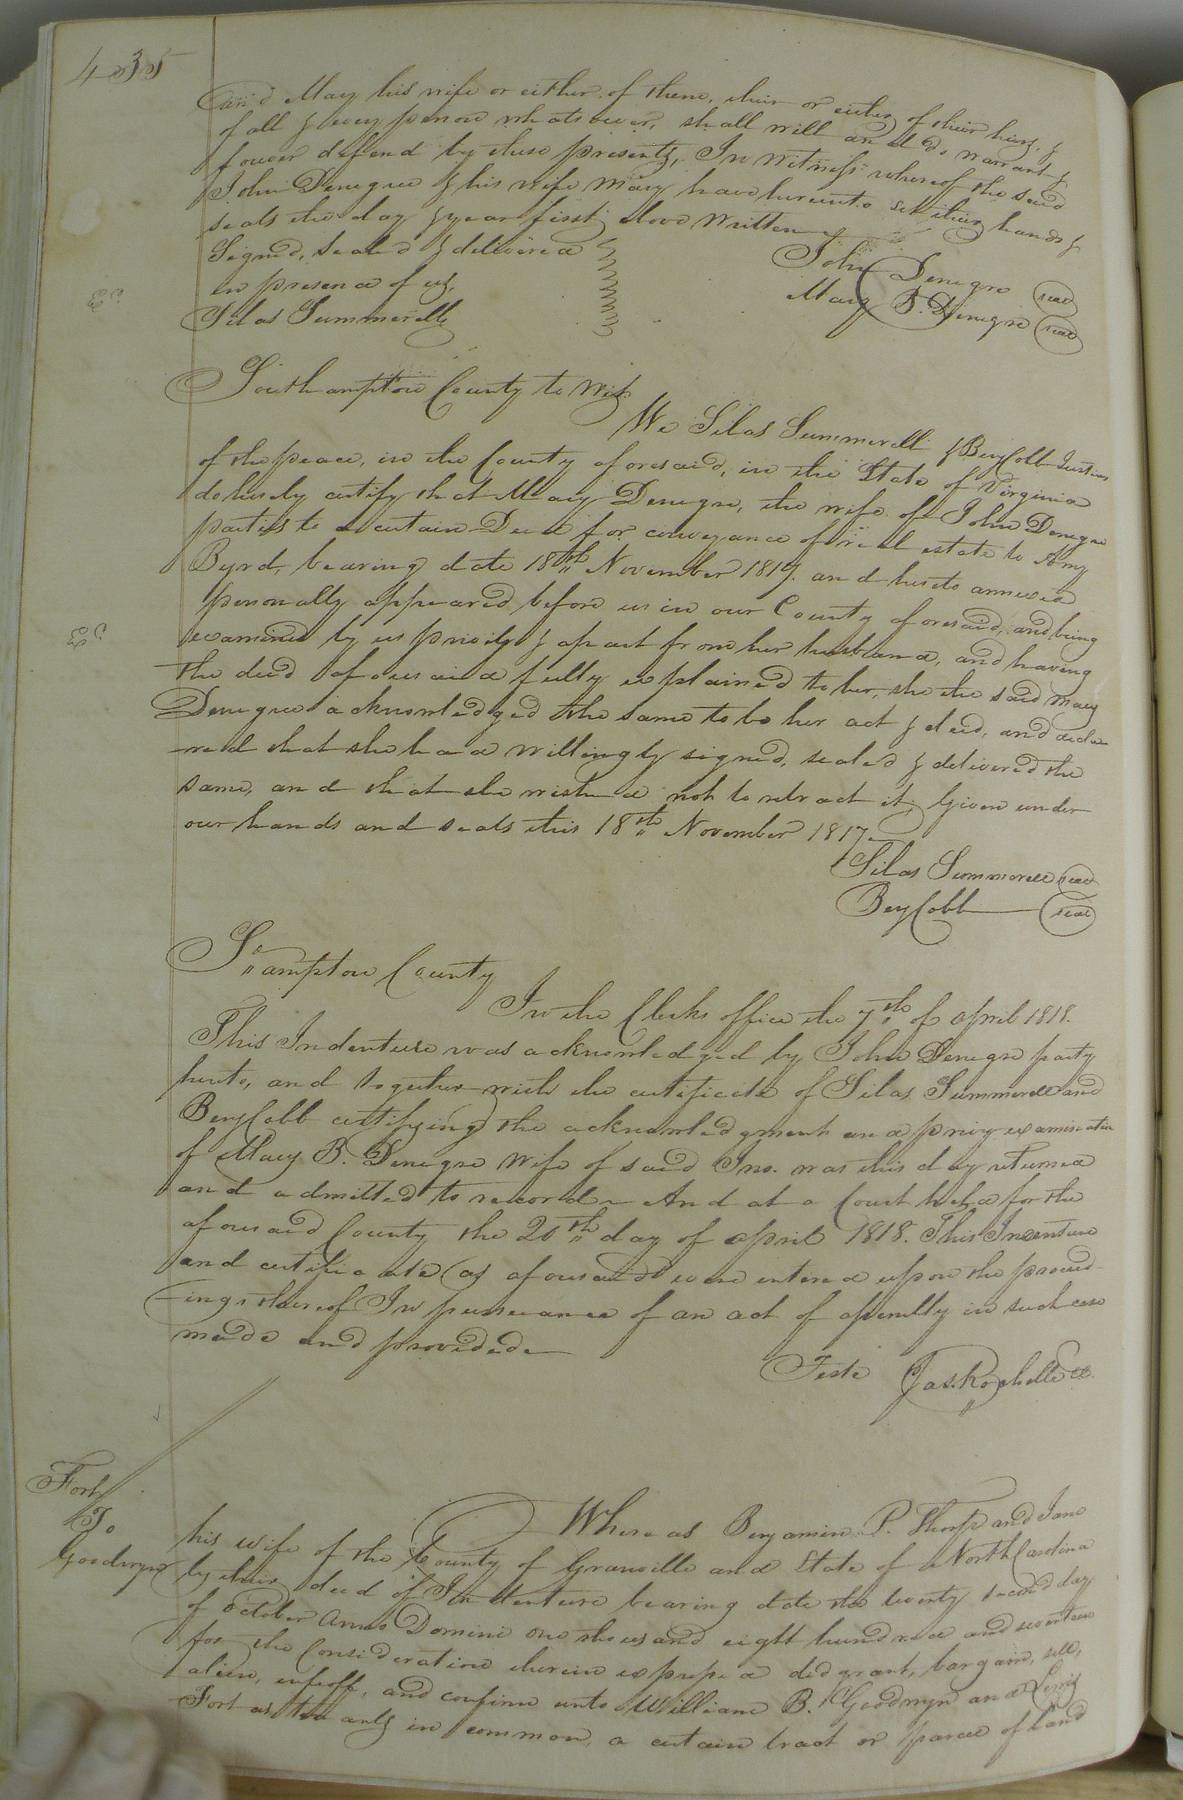 435
and Mary his wife or either of them, their or either of their heirs, &
of all & every person whatsoever, shall will and do warrant &
forever defend by these presents, In witness whereof the said
John Denegre & his wife Mary have hereunto set their hands &
seals the day & year first above written
Signed, sealed & delivered
in presence of us,
Silas Summerell
John Denegre seal
Mary B. Denegre seal
Southampton County to wit,
We Silas Summerell & Benj Cobb Justices
of the peace, in the County aforesaid, in the State of Virginia
do hereby certify that Mary Denegre, the wife of John Denegre
parties to a certain Deed for conveyance of real estate to Amy
Byrd, bearing date 18th November 1817. and hereto annexed
personally appeared before us in our County aforesaid, and being
examined by us privily & apart from her husband, and having
the deed aforesaid fully explained to her, she the said Mary
Denegre acknowledged the same to be her act & deed, and decla
red that she had willingly signed, sealed & delivered the
same, and that she wished not to retract it, Given under
our hands and seals this 18th November 1817
Silas Summerell seal
Benj Cobb seal
So ampton County
In the Clerks office the 7th of April 1818.
This Indenture was acknowledged by John Denegre party
hereto, and together with the certificate of Silas Summerell and
Benj Cobb certifying the acknowledgment and privy examination
of Mary B. Denegre wife of said Jno. was this day returned
and admitted to record - And at a Court held for the
aforesaid County the 20th day of April 1818. This Indenture
and certificate (as aforesaid) were entered upon the proceed-
-ings thereof In pursuance of an act of assembly in such case
made and provided
Teste Jas. Rochelle cc.
Fort
To
Goodwyn
Whereas Benjamin P. Thorp and Jane
his wife of the County of Granville and State of North Carolina
by their deed of Indenture bearing date the twenty second day
of October Anno Domini one thousand eight hundred and seventeen
for the Consideration therein expressed did grant, bargain, sell,
alien, enfeoff, and confirm unto William B. Goodwyn and Lewis
Fort as tenants in common, a certain tract or parcel of land